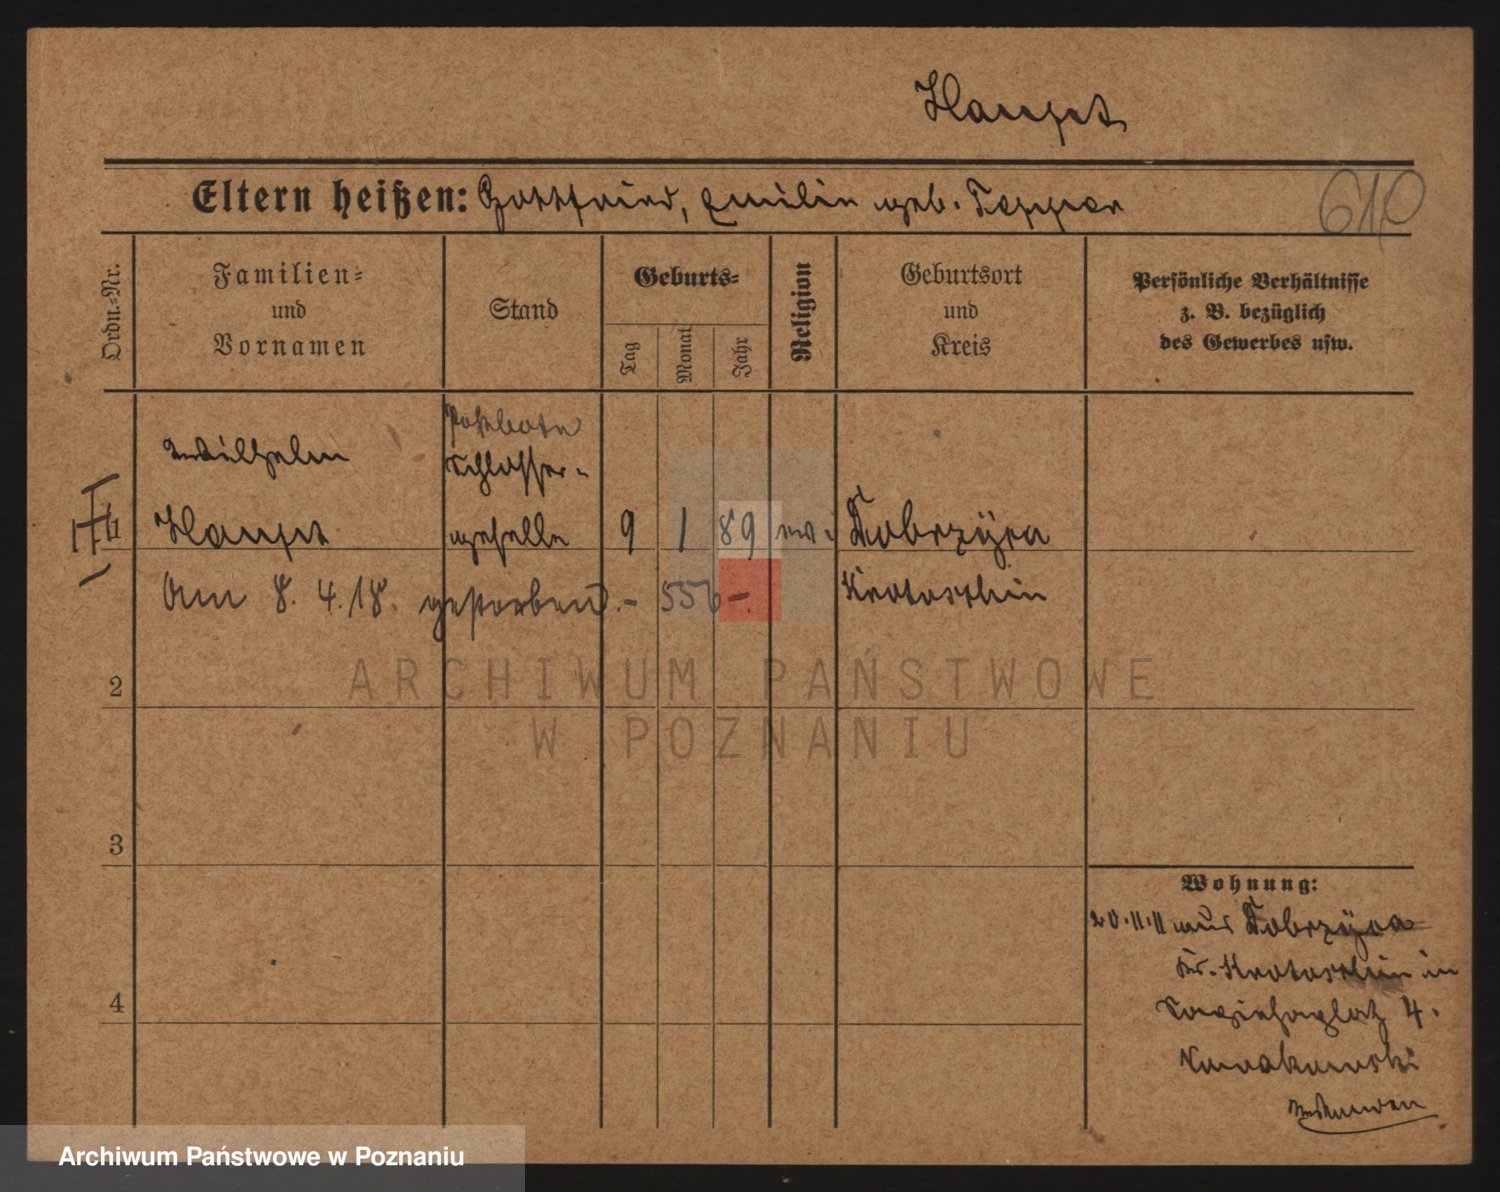 Haupt
Eltern heißen: Gottfried, Emilie geb. Tepper
610
Ordn.=Nr.
Familien=
und
Vornamen
Stand
Geburts=
Tag
Monat
Jahr
Religion
Geburtsort
und
Kreis
Persönliche Verhältnisse
z. B. bezüglich
des Gewerbes usw.
Postbote
Wilhelm
Schlosser-
1
Haupt
geselle
9
1
89
ev.
Dobrzyca
Am 8.4.18. gestorben.- 556 -.
Krotoschin
ARCHIWUM PAŃSTWOWE
W POZNANIU
2
3
4
Wohnung:
20.11.11 aus Dobrzyca
Kr. Krotoschin in
Sapiehaplatz 4.
Archiwum Państwowe w Poznaniu